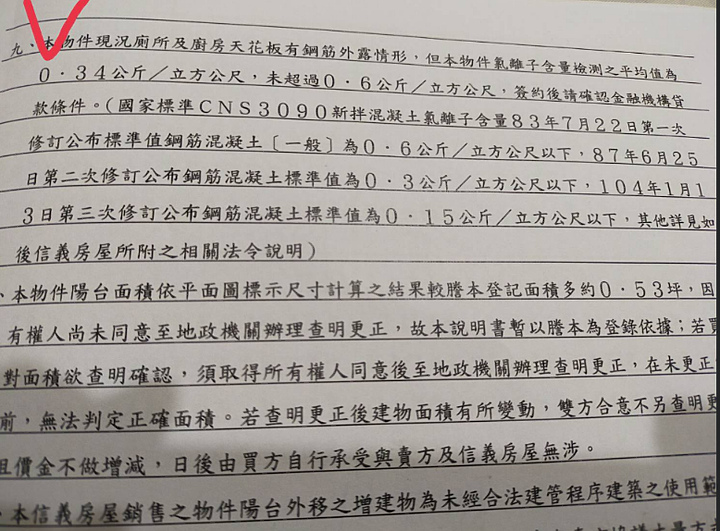 九、本物件現況廁所及廚房天花板有鋼筋外露情形，但本物件氯離子含量檢測之平均值為
０．３４公斤／立方公尺，未超過０．６公斤／立方公尺，簽約後請確認金融機構貸
款條件。（國家標準ＣＮＳ３０９０新拌混凝土氯離子含量８３年７月２２日第一次
修訂公布標準值鋼筋混凝土〔一般〕為０．６公斤／立方公尺以下，８７年６月２５
日第二次修訂公布鋼筋混凝土標準值為０．３公斤／立方公尺以下，１０４年１月１
３日第三次修訂公布鋼筋混凝土標準值為０．１５公斤／立方公尺以下，其他詳見如
後信義房屋所附之相關法令說明）
、本物件陽台面積依平面圖標示尺寸計算之結果較謄本登記面積多約０．５３坪，因
有權人尚未同意至地政機關辦理查明更正，故本說明書暫以謄本為登錄依據；若買
對面積欲查明確認，須取得所有權人同意後至地政機關辦理查明更正，在未更正
前，無法判定正確面積。若查明更正後建物面積有所變動，雙方合意不另查明更
且價金不做增減，日後由買方自行承受與賣方及信義房屋無涉。
、本信義房屋銷售之物件陽台外移之增建物為未經合法建管程序建築之使用範